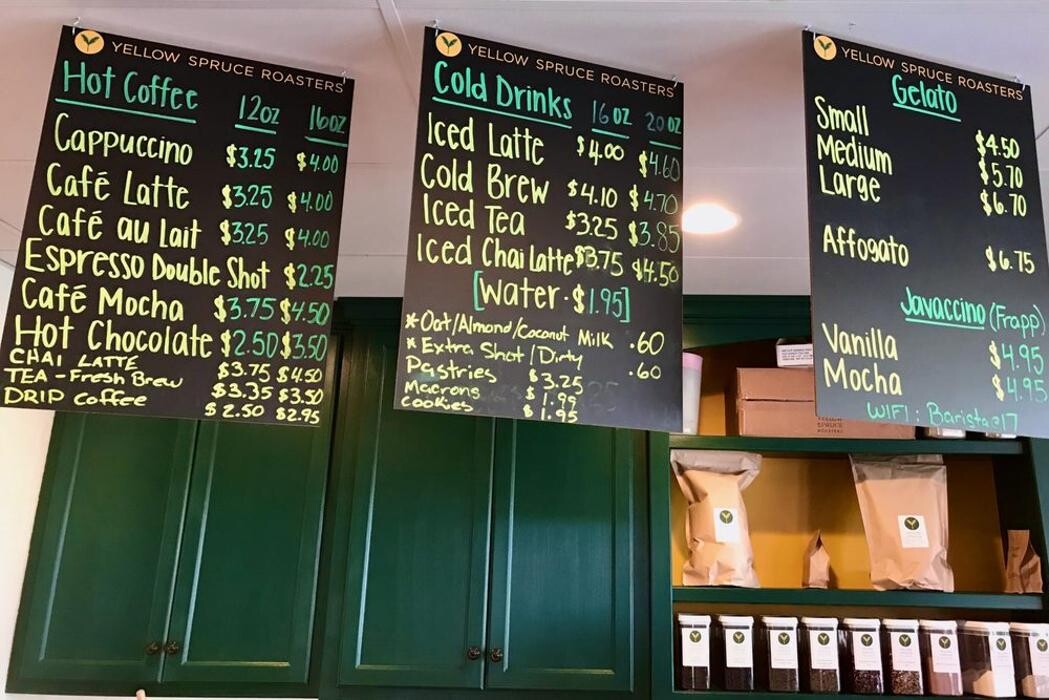 YELLOW SPRUCE ROASTERS
Hot Coffee 12oz 16oz
Cappuccino $3.25 $4.00
Café Latte $3.25 $4.00
Café au Lait $3.25 $4.00
Espresso Double Shot $2.25
Café Mocha $3.75 $4.50
Hot Chocolate $2.50 $3.50
CHAI LATTE $3.75 $4.50
TEA - Fresh Brew $3.35 $3.50
DRIP Coffee $2.50 $2.95
YELLOW SPRUCE ROASTERS
Cold Drinks 16 oz 20 oz
Iced Latte $4.00 $4.60
Cold Brew $4.10 $4.70
Iced Tea $3.25 $3.85
Iced Chai Latte $3.75 $4.50
[Water · $1.95]
* Oat/Almond/Coconut Milk .60
* Extra Shot/Dirty .60
Pastries $3.25
Macrons $1.95
Cookies $1.95
YELLOW SPRUCE ROASTERS
Gelato
Small $4.50
Medium $5.70
Large $6.70
Affogato $6.75
Javaccino (Frapp)
Vanilla $4.95
Mocha $4.95
YELLOW SPRUCE ROASTERS